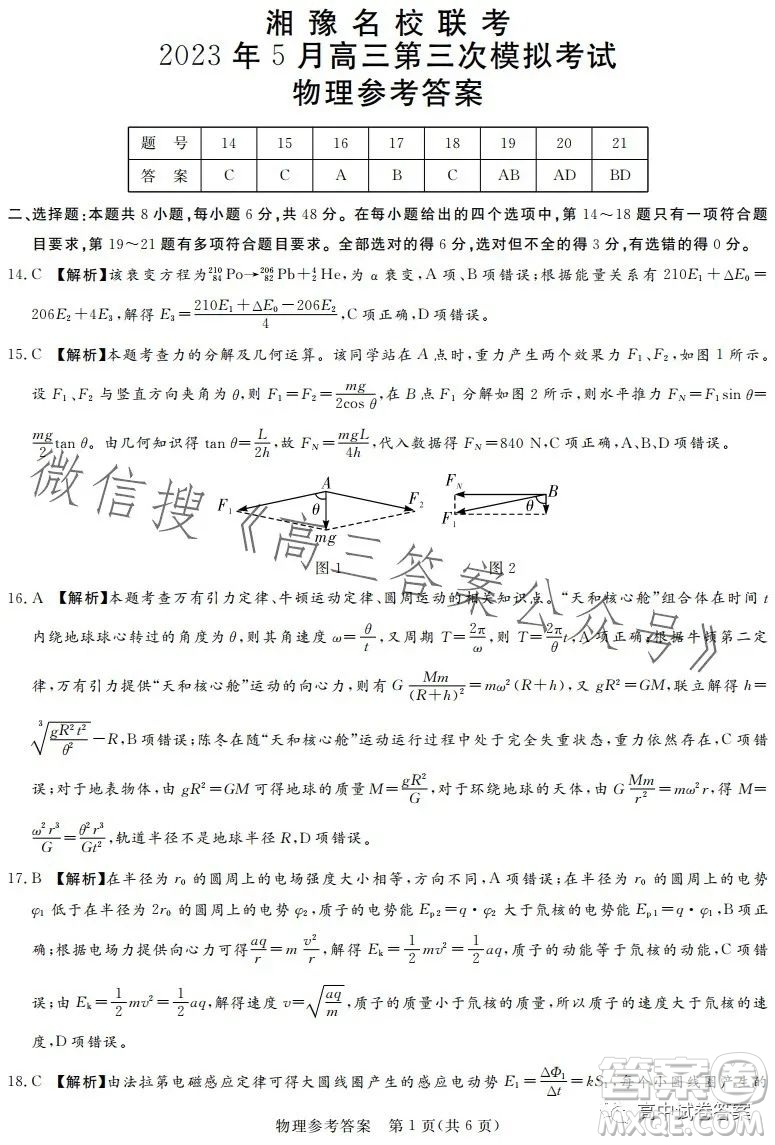 湘豫名校联考
2023年5月高三第三次模拟考试
物理参考答案
题 号 14 15 16 17 18 19 20 21
答 案 C C A B C AB AD BD
二、选择题:本题共8小题,每小题6分,共48分。在每小题给出的四个选项中,第14~18题只有一项符合题
目要求,第19~21题有多项符合题目要求。全部选对的得6分,选对但不全的得3分,有选错的得0分。
14. C 【解析】该衰变方程为²¹⁰₈₄Po→²⁰⁶₈₂Pb+⁴₂He,为α衰变,A项、B项错误;根据能量关系有210E₁+ΔE₀=
206E₂+4E₃,解得E₃=(210E₁+ΔE₀-206E₂)/4,C项正确,D项错误。
15. C 【解析】本题考查力的分解及几何运算。该同学站在A点时,重力产生两个效果力F₁、F₂,如图1所示。
设F₁、F₂与竖直方向夹角为θ,则F₁=F₂=mg/(2cos θ),在B点F₁分解如图2所示,则水平推力F_N=F₁sin θ=
mg/2 tan θ。由几何知识得tan θ=L/2h,故F_N=mgL/4h,代入数据得F_N=840 N,C项正确,A、B、D项错误。
A
F₁ θ F₂
mg
图1
F_N B
F₁ θ
图2
16. A 【解析】本题考查万有引力定律、牛顿运动定律、圆周运动的相关知识点。“天和核心舱”组合体在时间t
内绕地球球心转过的角度为θ,则其角速度ω=θ/t,又周期T=2π/ω,则T=2π/θ t,A项正确;根据牛顿第二定
律,万有引力提供“天和核心舱”运动的向心力,则有G Mm/(R+h)²=mω²(R+h),又gR²=GM,联立解得h=
∛(gR²t²/θ²)-R,B项错误;陈冬在随“天和核心舱”运动运行过程中处于完全失重状态,重力依然存在,C项错
误;对于地表物体,由gR²=GM可得地球的质量M=gR²/G,对于环绕地球的天体,由G Mm/r²=mω²r,得M=
ω²r³/G=θ²r³/Gt²,轨道半径不是地球半径R,D项错误。
17. B 【解析】在半径为r₀的圆周上的电场强度大小相等,方向不同,A项错误;在半径为r₀的圆周上的电势
φ₁低于在半径为2r₀的圆周上的电势φ₂,质子的电势能E_p2=q·φ₂大于氚核的电势能E_p1=q·φ₁,B项正
确;根据电场力提供向心力可得aq/r=m v²/r,解得E_k=1/2 mv²=1/2 aq,质子的动能等于氚核的动能,C项错
误;由E_k=1/2 mv²=1/2 aq,解得速度v=√(aq/m),质子的质量小于氚核的质量,所以质子的速度大于氚核的速
度,D项错误。
18. C 【解析】由法拉第电磁感应定律可得大圆线圈产生的感应电动势E₁=ΔΦ₁/Δt=kS₁,每个小圆线圈产生的
物理参考答案 第1页(共6页)
微信搜《高三答案公众号》
答案圈
高中试卷答案